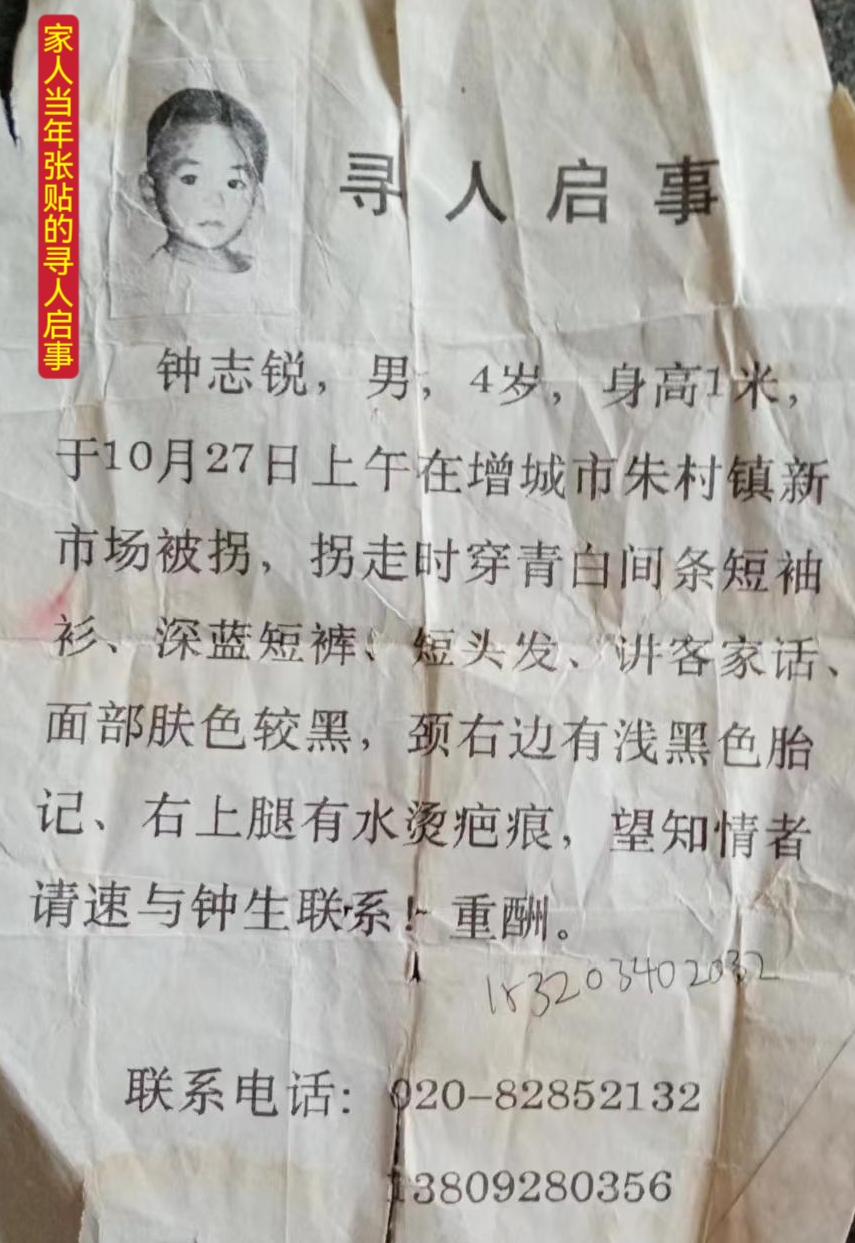 家人当年张贴的寻人启事
寻人启事
钟志锐，男，4岁，身高1米，
于10月27日上午在增城市朱村镇新
市场被拐，拐走时穿青白间条短袖
衫、深蓝短裤、短头发、讲客家话、
面部肤色较黑，颈右边有浅黑色胎
记、右上腿有水烫疤痕，望知情者
请速与钟生联系！重酬。
183203402032
联系电话：020-82852132
13809280356